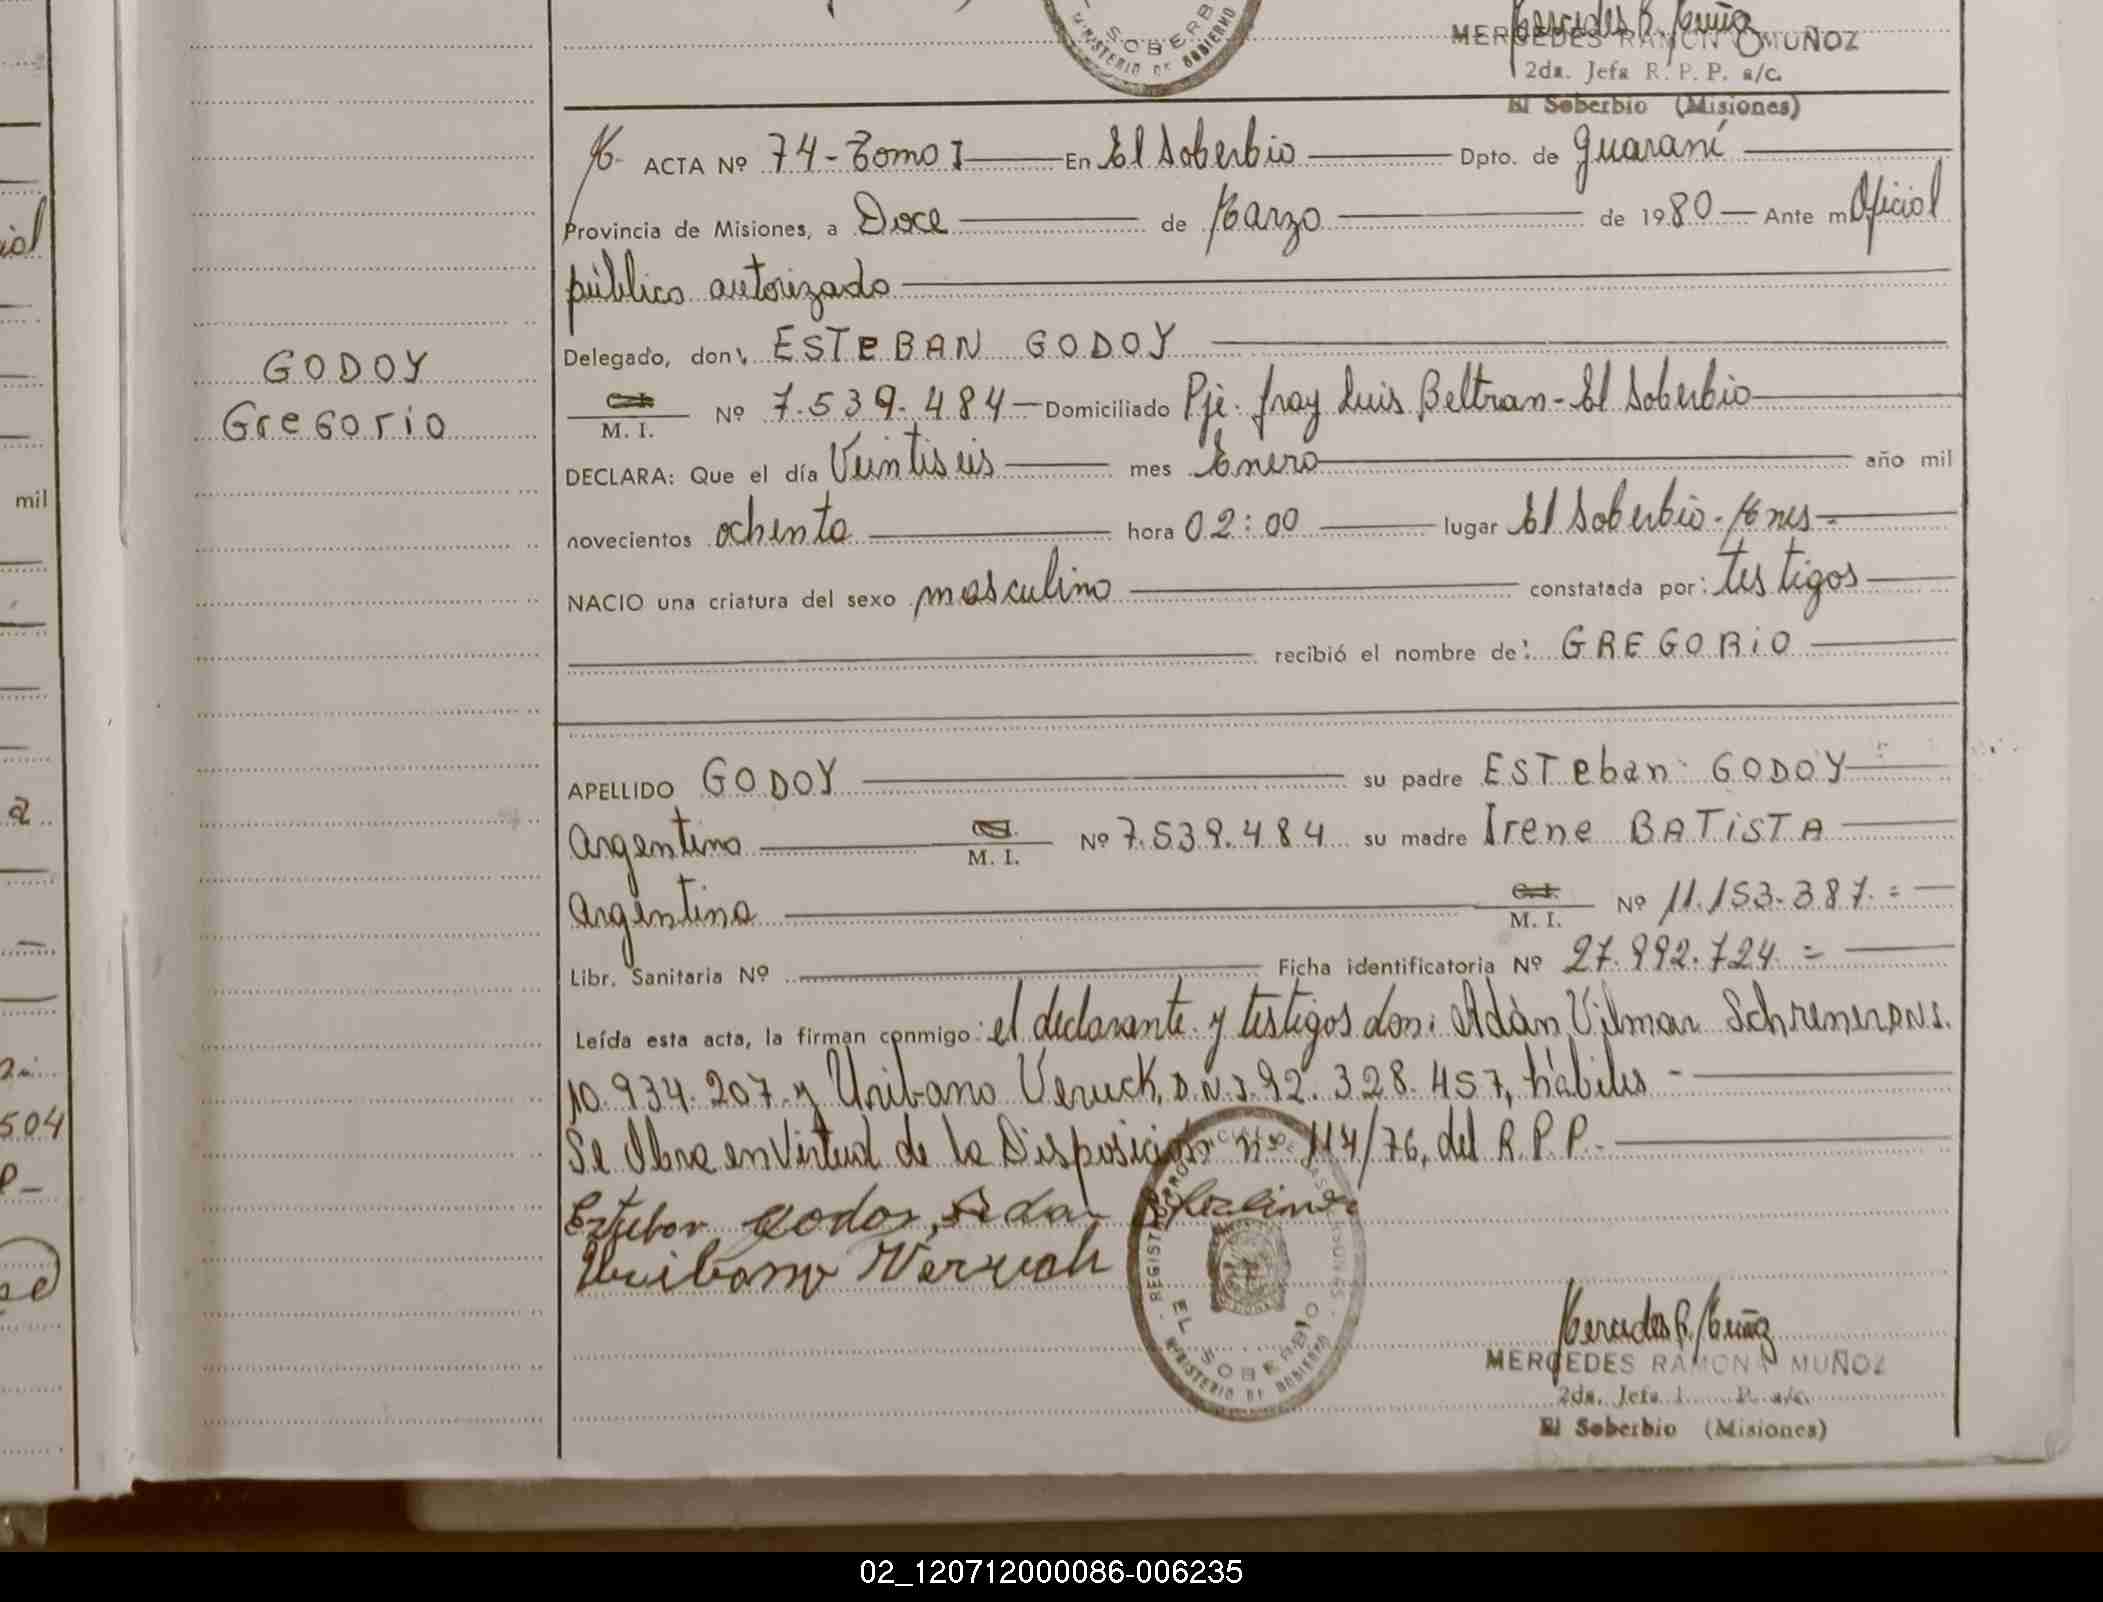 MERCEDES RAMON MUÑOZ
2da. Jefa R. P. P. a/c.
El Soberbio (Misiones)
SOBERB
MINISTERIO DE GOBIERNO
ACTA Nº 74 - Tomo I En El Soberbio Dpto. de Guaraní
Provincia de Misiones, a Doce de Marzo de 1980 Ante mi Oficial
público autorizado
Delegado, don: ESTEBAN GODOY
GODOY
Gregorio
C.I. M. I. Nº 7.539.484 Domiciliado Pje. Fray Luis Beltran - El Soberbio
DECLARA: Que el día Veintiseis mes Enero año mil
novecientos ochenta hora 02:00 lugar El Soberbio - Mnes -
NACIO una criatura del sexo masculino constatada por: testigos
recibió el nombre de: GREGORIO
APELLIDO GODOY su padre ESTeban GODOY
Argentino M. I. Nº 7.539.484 su madre Irene BATISTA
Argentina C.I. M. I. Nº 11.153.387. =
Libr. Sanitaria Nº Ficha identificatoria Nº 27.992.724 =
Leída esta acta, la firman conmigo: el declarante y testigos don: Adàn Vilmar Schreiner D.N.I.
10.934.207 y Uribano Veruck, D.N.I. 92.328.457, hàbiles -
Se Obra en Virtud de la Disposiciòn nº 114/76, del R.P.P.-
Esteban Godoy, Adan
Uribano Veruck
REGISTRO PROVINCIAL DE LAS PERSONAS
EL SOBERBIO
MINISTERIO DE GOBIERNO
Mercedes R. Muñoz
MERCEDES RAMON MUÑOZ
2da. Jefa P. a/c.
El Soberbio (Misiones)
mil
a
504
02_120712000086-006235